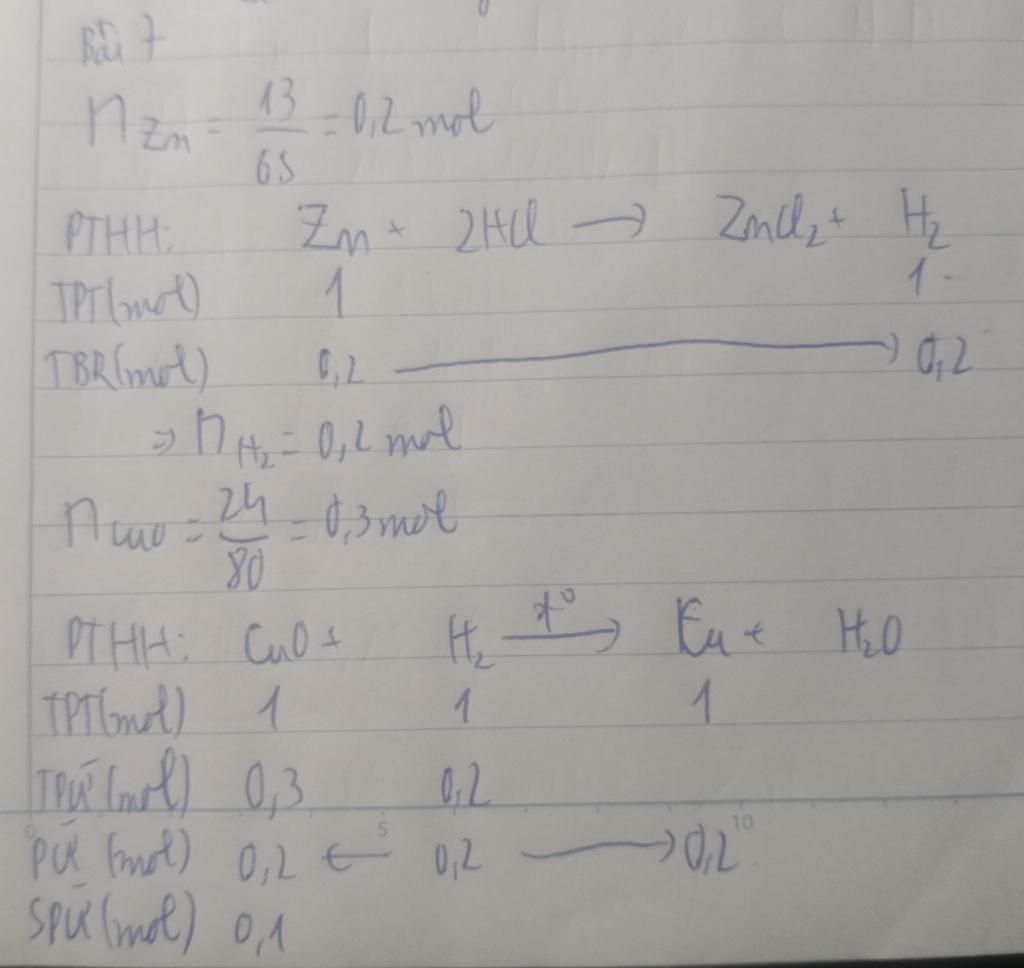 Bài 7
n Zn = 13/65 = 0,2 mol
PTHH: Zn + 2HCl → ZnCl₂ + H₂
TPT(mol) 1 1
TBR(mol) 0,2 → 0,2
⇒ n H₂ = 0,2 mol
n CuO = 24/80 = 0,3 mol
PTHH: CuO + H₂ t° → Cu + H₂O
TPT(mol) 1 1 1
TPƯ (mol) 0,3 0,2
0 5 10
PƯ (mol) 0,2 ← 0,2 → 0,2
SPƯ (mol) 0,1